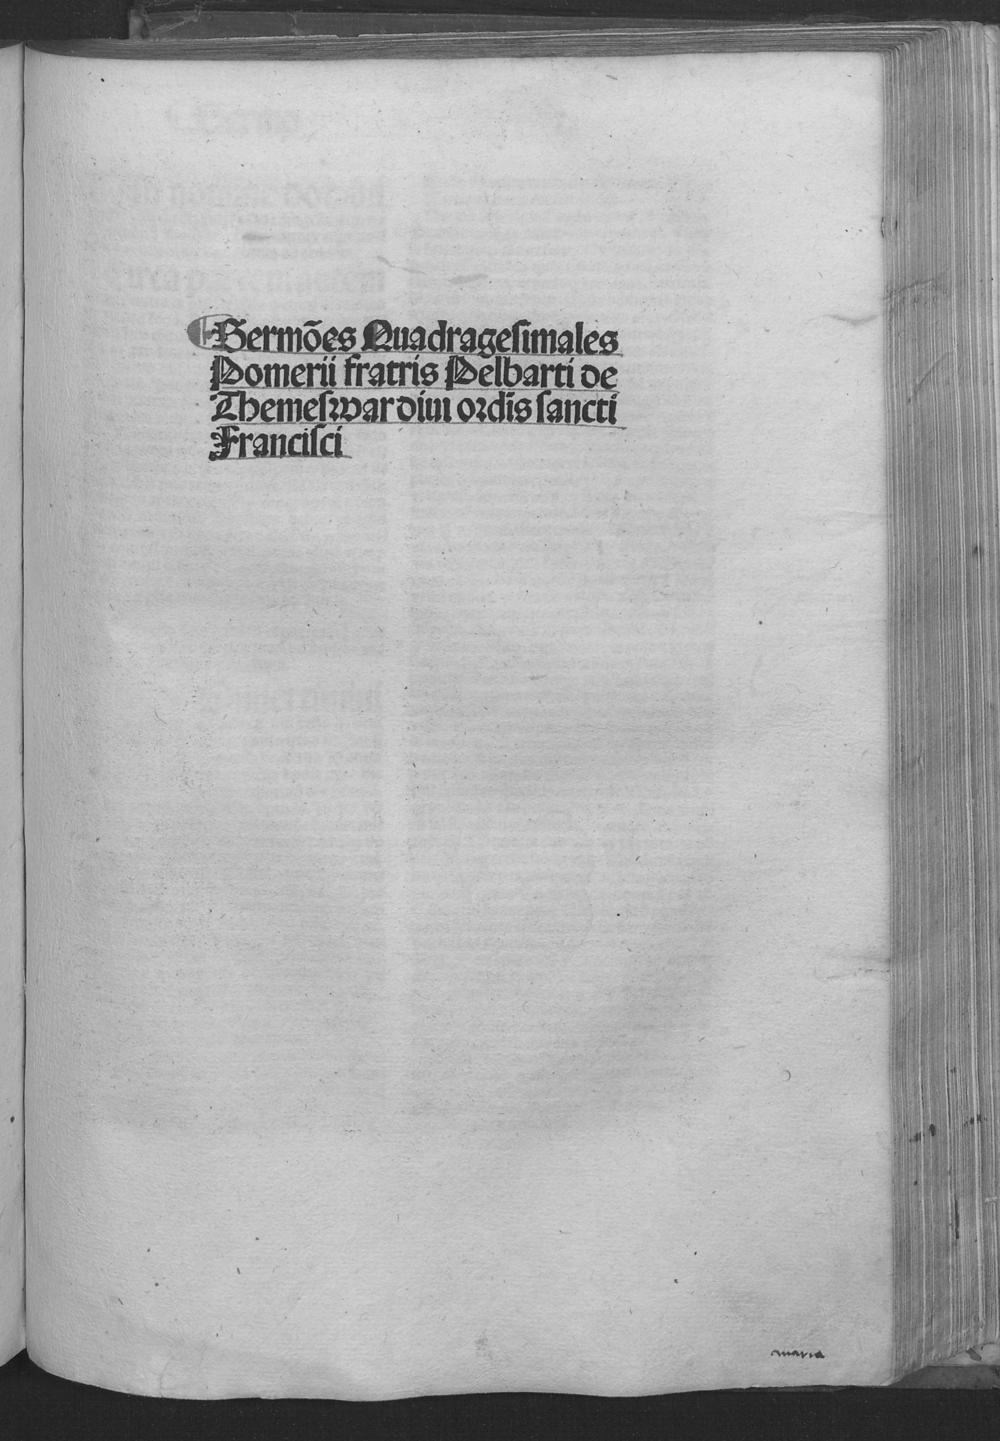 ¶Sermões Quadragesimales
Pomerii fratris Pelbarti de
Themeswar diui ordis sancti
Francisci
maria